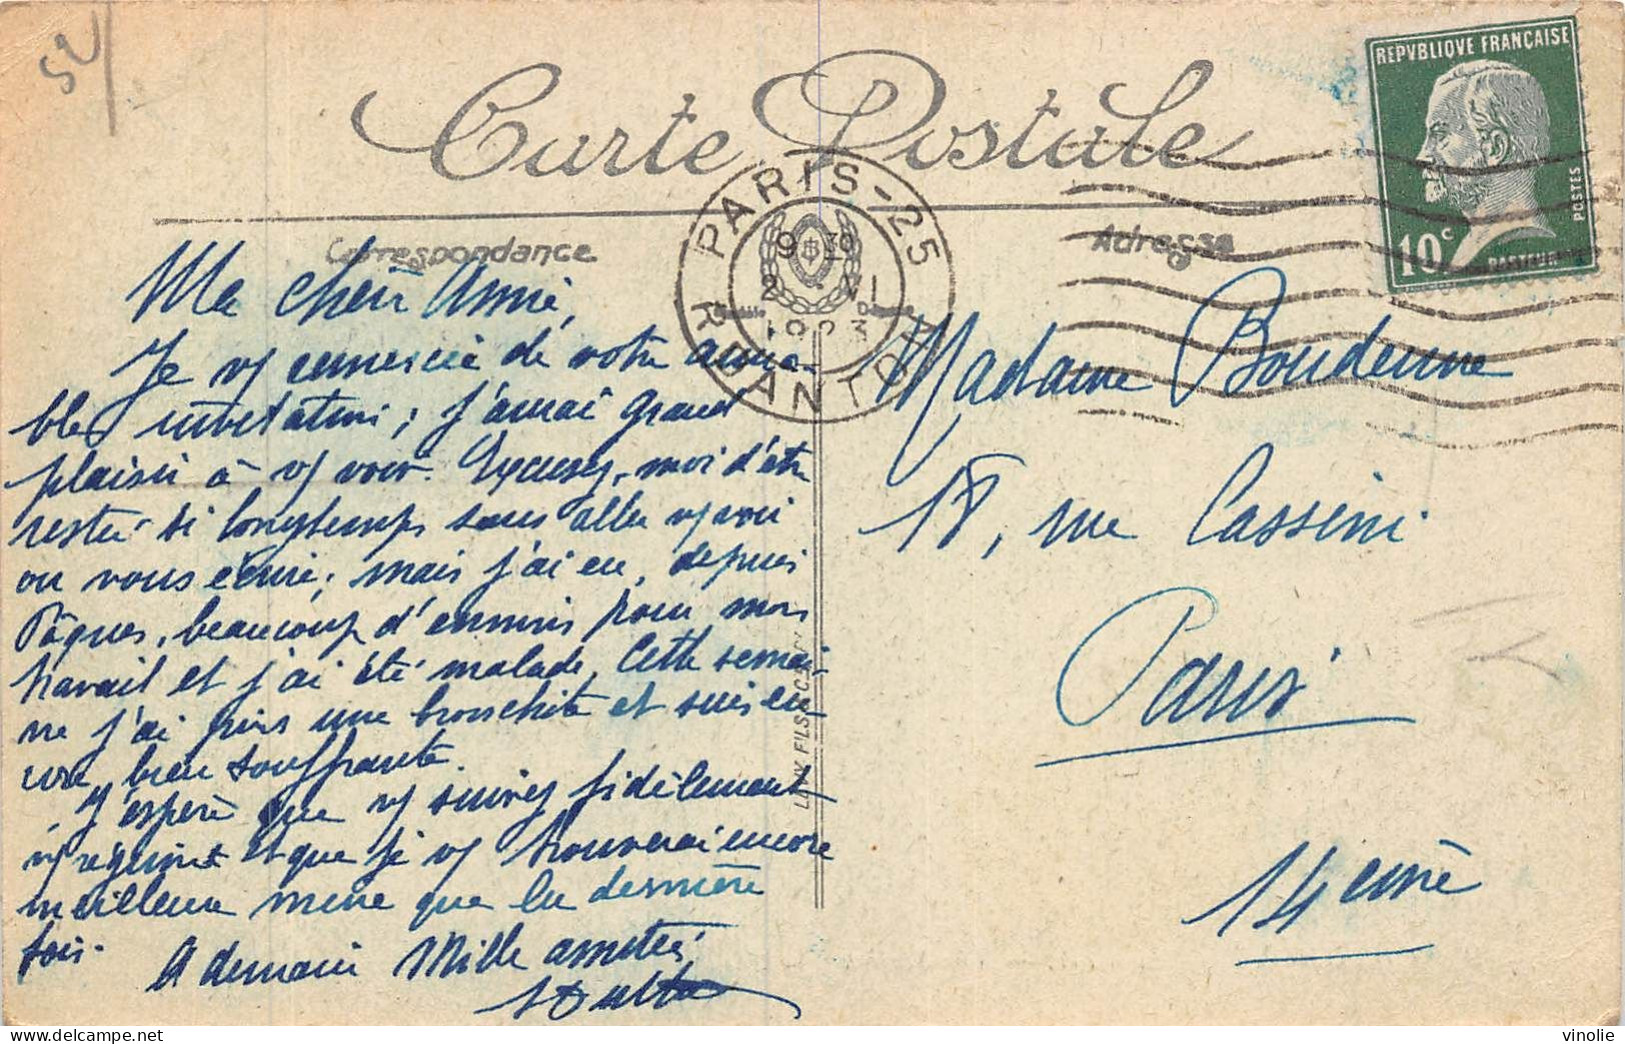 52
Carte Postale
REPVBLIQVE FRANÇAISE
POSTES
10c
PASTEUR
PARIS-25
R. DANTON
9 30
2 VI
1923
Correspondance
Adresse
Ma chère Amie,
Je vs remercie de votre aima-
ble invitation ; j'aurai grand
plaisir à vs voir. Excusez-moi d'être
restée si longtemps sans aller vs voir
ou vous écrire ; mais j'ai eu, depuis
Pâques, beaucoup d'ennuis pour mon
travail et j'ai été malade. Cette semai-
ne j'ai pris une bronchite et suis en-
core bien souffrante.
J'espère que vs suivez fidèlement
vs régime et que je vs trouverai encore
meilleure mine que la dernière
fois.
A demain Mille amitiés,
Madame Boudenne
18, rue Cassini
Paris
14eme
LEVY FILS & C
vinolie